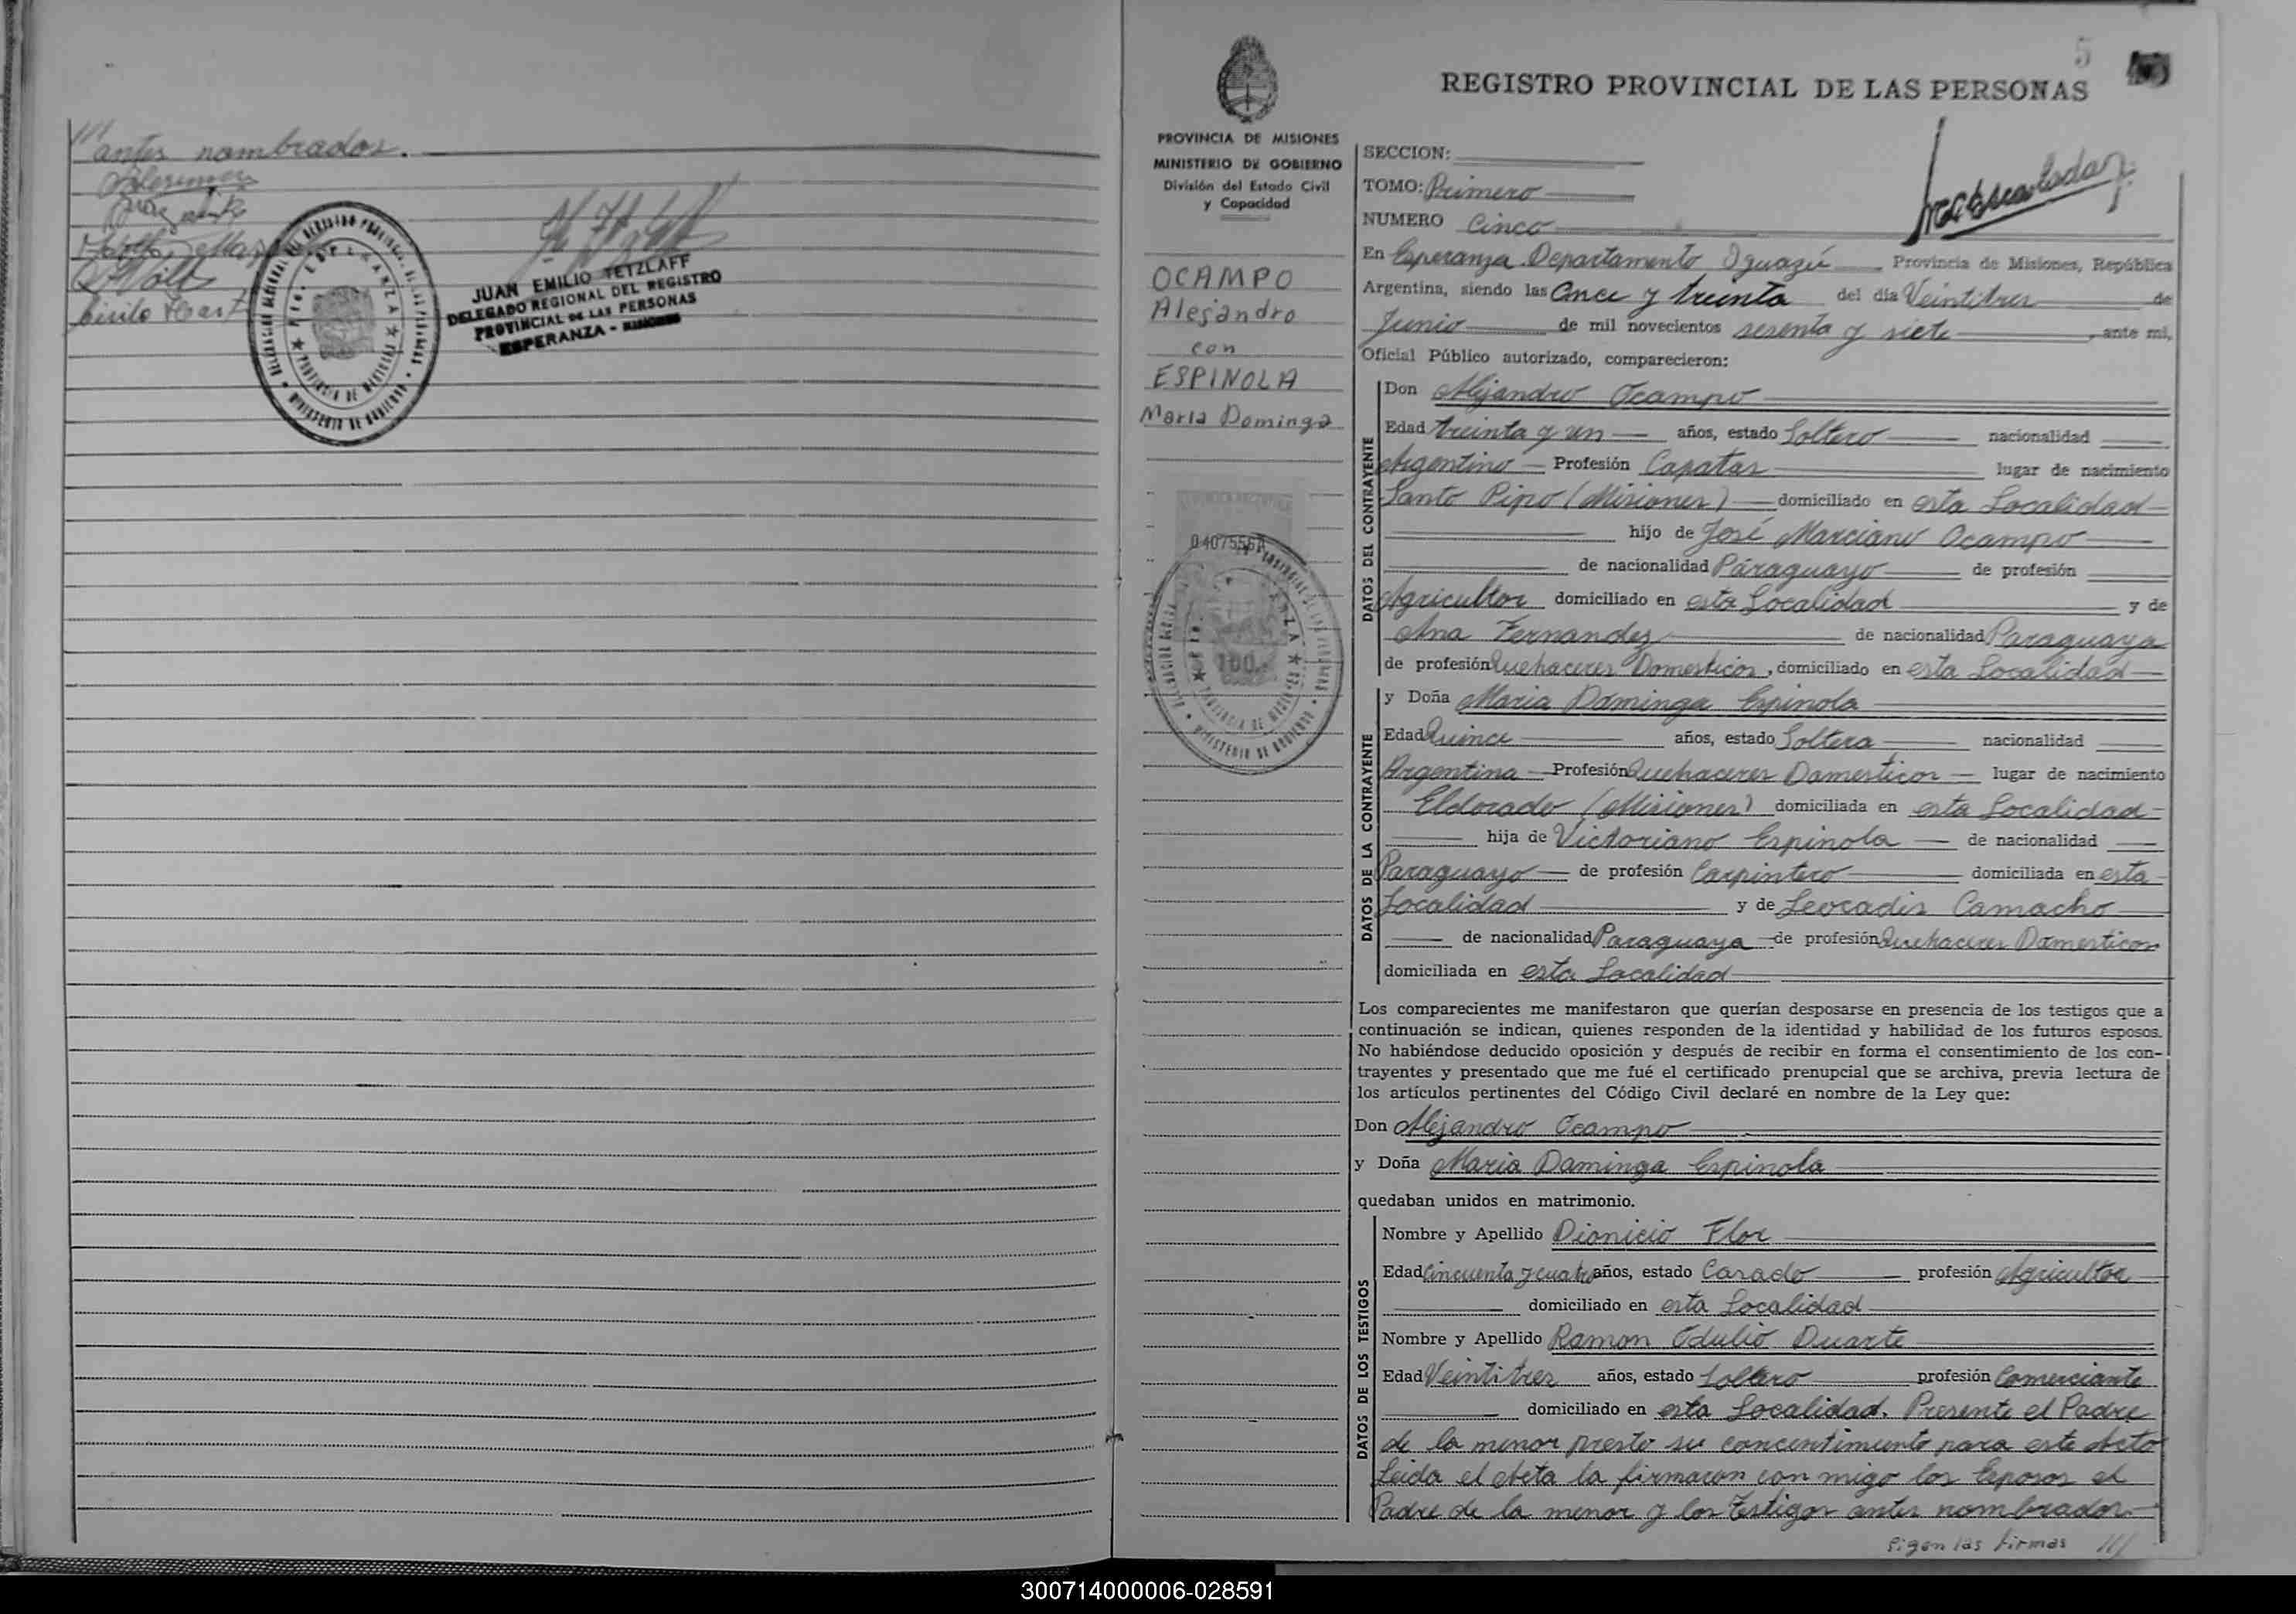 /// antes nombrados.
JUAN EMILIO TETZLAFF
DELEGADO REGIONAL DEL REGISTRO
PROVINCIAL DE LAS PERSONAS
ESPERANZA - MISIONES
5
REGISTRO PROVINCIAL DE LAS PERSONAS
PROVINCIA DE MISIONES
MINISTERIO DE GOBIERNO
División del Estado Civil
y Capacidad
OCAMPO
Alejandro
con
ESPINOLA
Maria Dominga
SECCION:
TOMO: Primero
NUMERO Cinco
En Esperanza Departamento Iguazú Provincia de Misiones, República
Argentina, siendo las Once y treinta del día Veintitres de
Junio de mil novecientos sesenta y siete, ante mi,
Oficial Público autorizado, comparecieron:
DATOS DEL CONTRAYENTE
Don Alejandro Ocampo
Edad treinta y un años, estado Soltero nacionalidad
Argentino Profesión Capataz lugar de nacimiento
Santo Pipo (Misiones) domiciliado en esta Localidad
hijo de José Marciano Ocampo
de nacionalidad Paraguayo de profesión
Agricultor domiciliado en esta Localidad y de
Ana Fernandez de nacionalidad Paraguaya
de profesión Quehaceres Domesticos, domiciliado en esta Localidad
DATOS DE LA CONTRAYENTE
y Doña Maria Dominga Espinola
Edad Quince años, estado Soltera nacionalidad
Argentina Profesión Quehaceres Domesticos lugar de nacimiento
Eldorado (Misiones) domiciliada en esta Localidad
hija de Victoriano Espinola de nacionalidad
Paraguayo de profesión Carpintero domiciliada en esta
Localidad y de Leocadia Camacho
de nacionalidad Paraguaya de profesión Quehaceres Domesticos
domiciliada en esta Localidad
Los comparecientes me manifestaron que querían desposarse en presencia de los testigos que a
continuación se indican, quienes responden de la identidad y habilidad de los futuros esposos.
No habiéndose deducido oposición y después de recibir en forma el consentimiento de los con-
trayentes y presentado que me fué el certificado prenupcial que se archiva, previa lectura de
los artículos pertinentes del Código Civil declaré en nombre de la Ley que:
Don Alejandro Ocampo
y Doña Maria Dominga Espinola
quedaban unidos en matrimonio.
DATOS DE LOS TESTIGOS
Nombre y Apellido Dionicio Flor
Edad Cincuenta y cuatro años, estado Casado profesión Agricultor
domiciliado en esta Localidad
Nombre y Apellido Ramon Odulio Duarte
Edad Veintitres años, estado Soltero profesión Comerciante
domiciliado en esta Localidad. Presente el Padre
de la menor presto su concentimiento para este Acto
Leida el Acta la firmaron con migo los Esposos el
Padre de la menor y los Testigos antes nombrados
Sigen las firmas ///
300714000006-028591